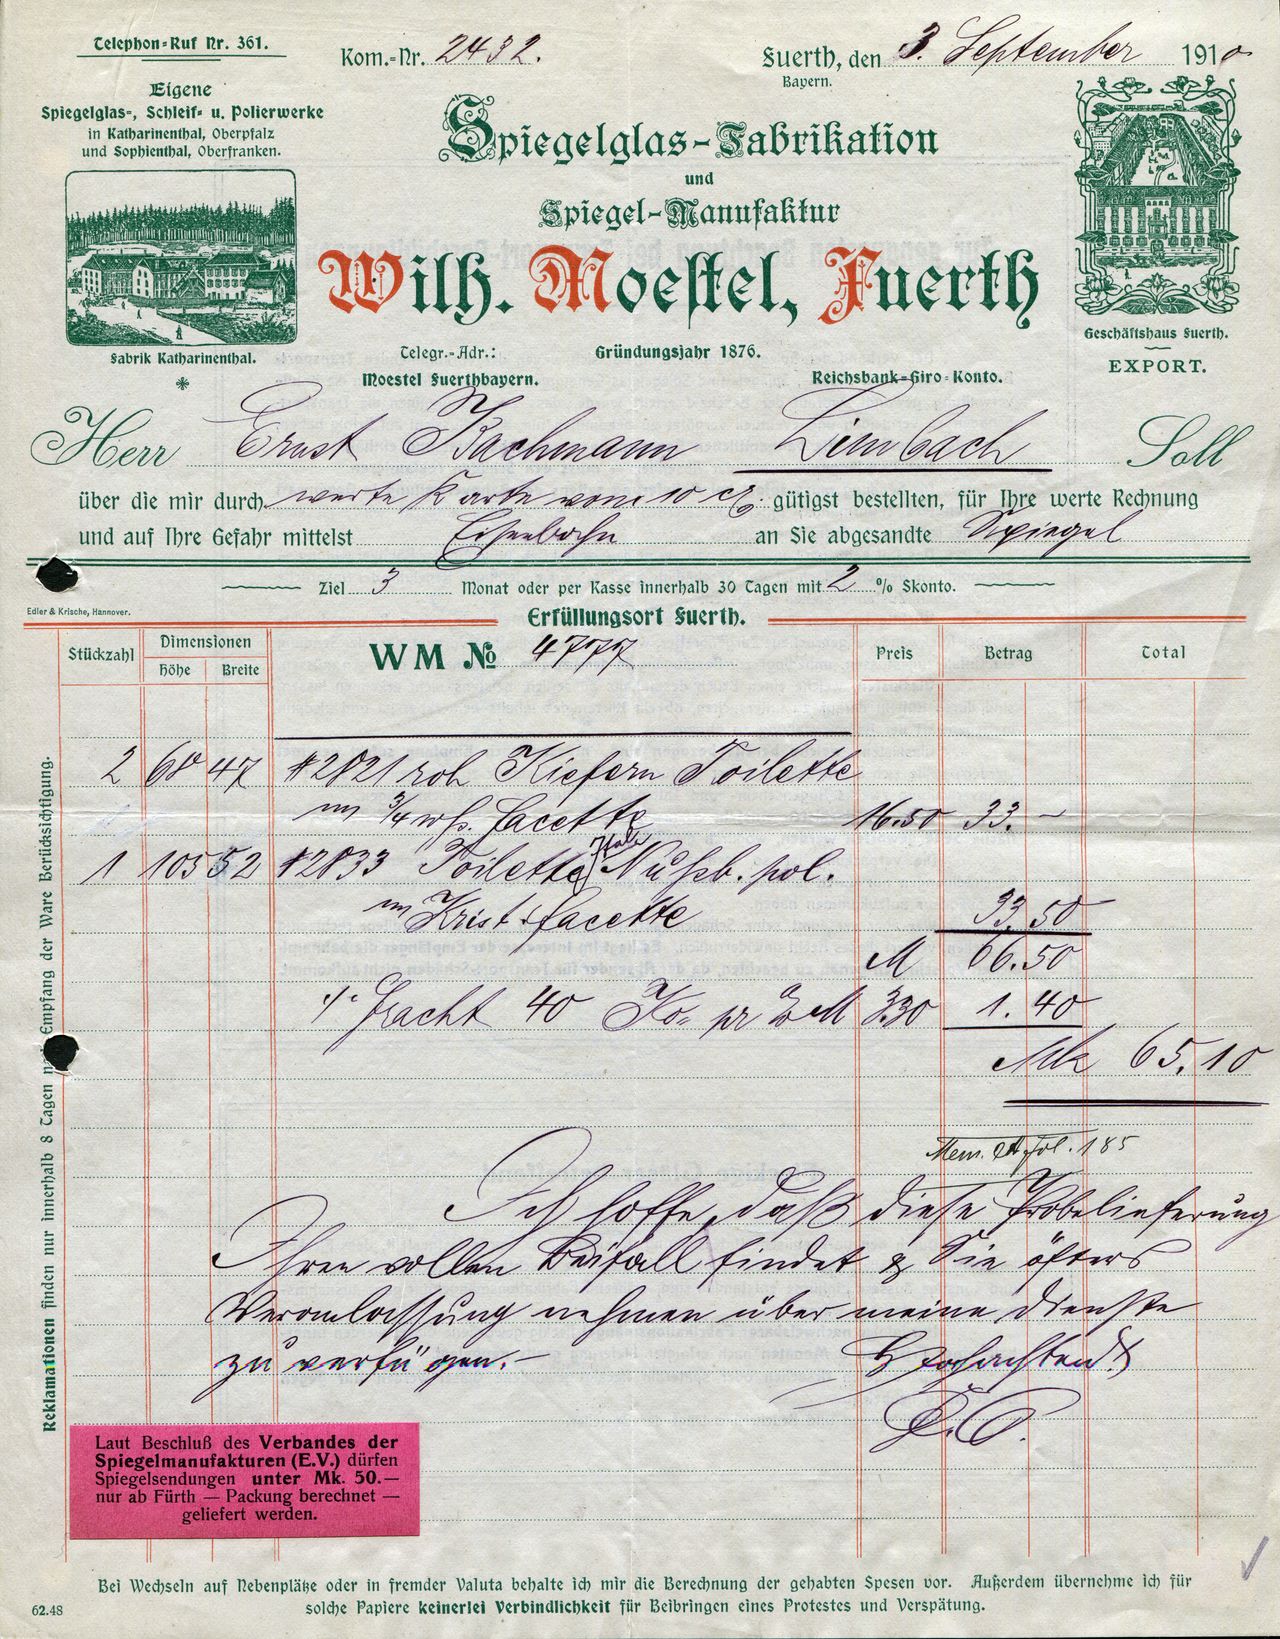 Telephon-Ruf Nr. 361.
Kom.-Nr. 2432.
Fuerth, den 3. September 1910
Bayern.
Eigene
Spiegelglas-, Schleif- u. Polierwerke
in Katharinenthal, Oberpfalz
und Sophienthal, Oberfranken.
Spiegelglas-Fabrikation
und
Spiegel-Manufaktur
Wilh. Moestel, Fuerth
Fabrik Katharinenthal.
Geschäftshaus Fuerth.
EXPORT.
Telegr.-Adr.:
Moestel Fuerthbayern.
Gründungsjahr 1876.
Reichsbank-Giro-Konto.
Herr Ernst Bachmann Limbach Soll
über die mir durch werte Karte vom 10 cr. gütigst bestellten, für Ihre werte Rechnung
und auf Ihre Gefahr mittelst Eisenbahn an Sie abgesandte Spiegel
Ziel 3 Monat oder per Kasse innerhalb 30 Tagen mit 2 % Skonto.
Edler & Krische, Hannover.
Erfüllungsort Fuerth.
Stückzahl
Dimensionen
Höhe Breite
WM No 4777
Preis Betrag Total
2 68 47 #2821 roh Kiefern Toilette
m 3/4 wß. Facette 16.50 33.-
1 105 52 #2833 Toilette Nußb. pol.
m Krist. Facette 33.50
M 66.50
./. Fracht 40 Ko. pr % M 3.30 1.40
Mk 65.10
Mem. A fol. 185
Ich hoffe, daß diese Probelieferung
Ihren vollen Beifall findet & Sie öfters
Veranlassung nehmen über meine Dienste
zu verfügen.-
Hochachtend!
Reklamationen finden nur innerhalb 8 Tagen nach Empfang der Ware Berücksichtigung.
Laut Beschluß des Verbandes der
Spiegelmanufakturen (E.V.) dürfen
Spiegelsendungen unter Mk. 50.—
nur ab Fürth — Packung berechnet —
geliefert werden.
Bei Wechseln auf Nebenplätze oder in fremder Valuta behalte ich mir die Berechnung der gehabten Spesen vor. Außerdem übernehme ich für
solche Papiere keinerlei Verbindlichkeit für Beibringen eines Protestes und Verspätung.
62.48